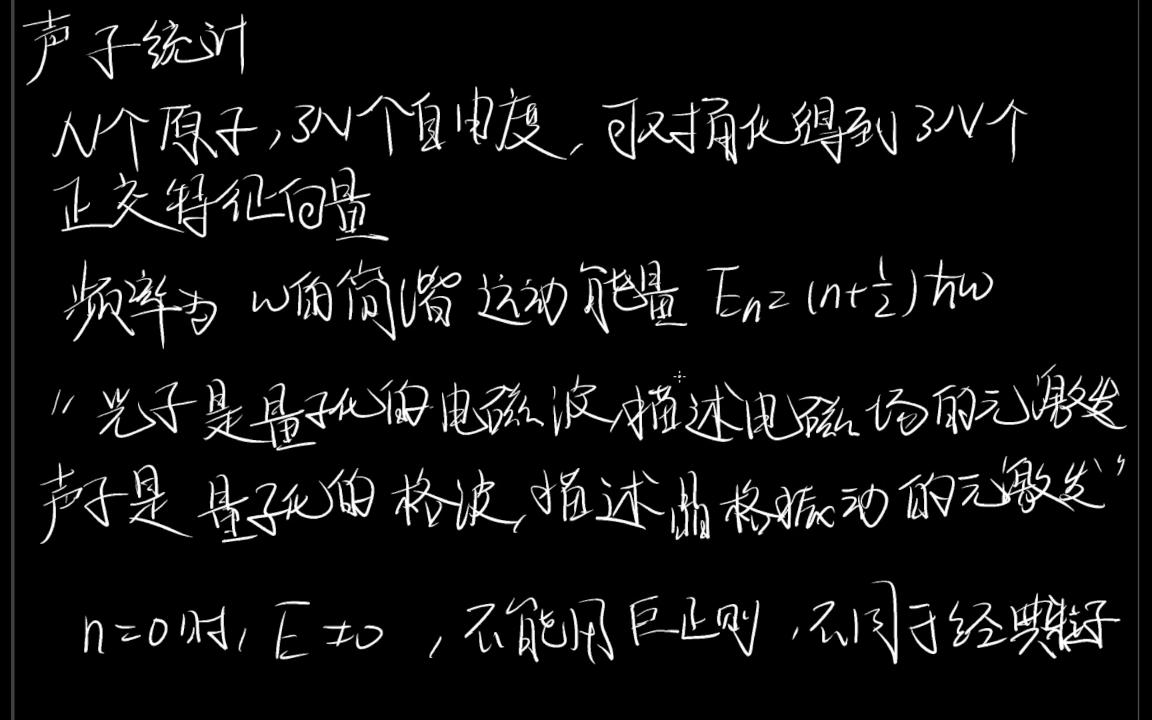 声子统计
N个原子,3N个自由度,可对角化得到3N个
正交特征向量
频率为 ω的简谐运动能量 Eₙ=(n+½)ħω
"光子是量子化的电磁波,描述电磁场的元激发
声子是量子化的格波,描述晶格振动的元激发"
n=0时, E≠0 ,不能用巨正则,不同于经典粒子